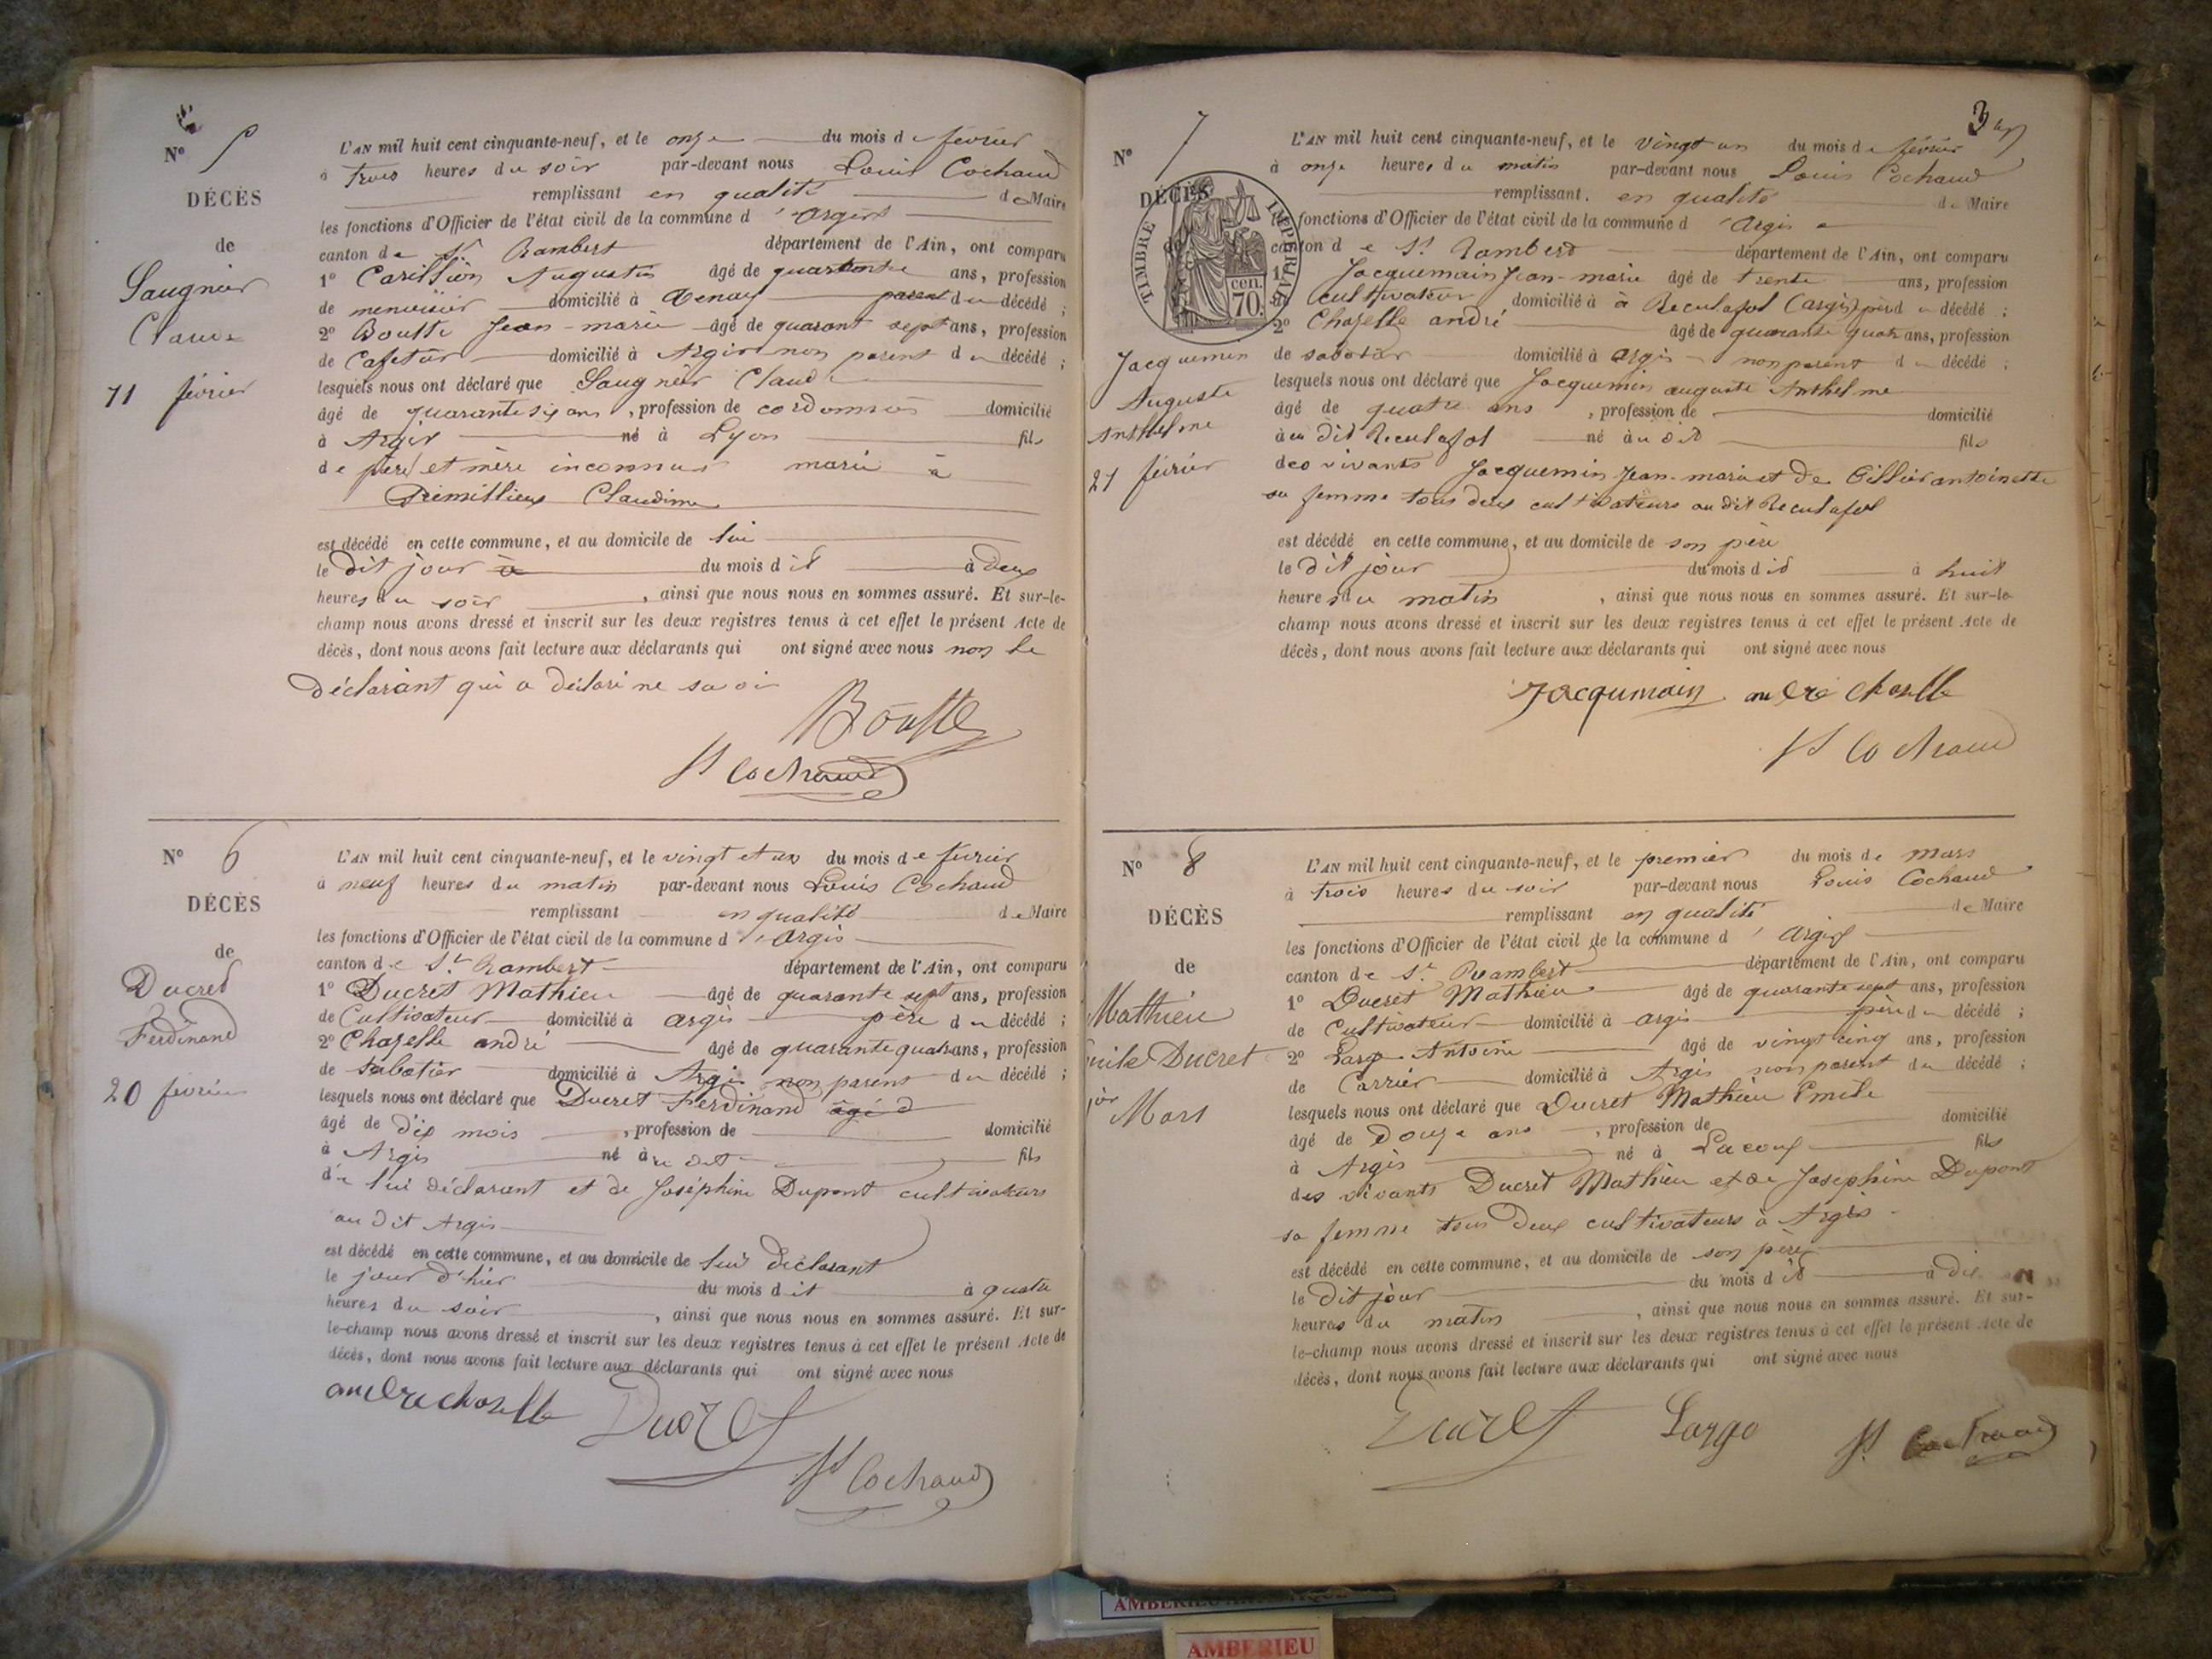 N° 5
DÉCÈS
de
Saugnier
Claude
11 février
L'AN mil huit cent cinquante-neuf, et le onze du mois de février
à trois heures du soir par-devant nous Louis Cochaud
remplissant en qualité de Maire
les fonctions d'Officier de l'état civil de la commune d'Argis
canton de St Rambert département de l'Ain, ont comparu
1° Carillion Augustin âgé de quarante ans, profession
de menuisier domicilié à Tenay parent du décédé ;
2° Boutte Jean-marie âgé de quarant sept ans, profession
de Cafetier domicilié à Argis non parent du décédé ;
lesquels nous ont déclaré que Saugnier Claude
âgé de quarante six ans, profession de cordonnier domicilié
à Argis né à Lyon fils
de père et mère inconnus marié à
Primillieux Claudine
est décédé en cette commune, et au domicile de lui
le dit jour du mois dit à deux
heures du soir, ainsi que nous nous en sommes assuré. Et sur-le-
champ nous avons dressé et inscrit sur les deux registres tenus à cet effet le présent Acte de
décès, dont nous avons fait lecture aux déclarants qui ont signé avec nous non le
déclarant qui a déclaré ne savoir
Boutte
Ls Cochaud
N° 6
DÉCÈS
de
Ducret
Ferdinand
20 février
L'AN mil huit cent cinquante-neuf, et le vingt et un du mois de février
à neuf heures du matin par-devant nous Louis Cochaud
remplissant en qualité de Maire
les fonctions d'Officier de l'état civil de la commune d'Argis
canton de St Rambert département de l'Ain, ont comparu
1° Ducret Mathieu âgé de quarante sept ans, profession
de Cultivateur domicilié à argis père du décédé ;
2° Chazelle andré âgé de quarante quatre ans, profession
de sabotier domicilié à Argis non parent du décédé ;
lesquels nous ont déclaré que Ducret Ferdinand âgé d
âgé de dix mois, profession de domicilié
à Argis né au dit fils
de lui déclarant et de Joséphine Dupont cultivateurs
au dit Argis
est décédé en cette commune, et au domicile de lui déclarant
le jour d'hier du mois dit à quatre
heures du soir, ainsi que nous nous en sommes assuré. Et sur-
le-champ nous avons dressé et inscrit sur les deux registres tenus à cet effet le présent Acte de
décès, dont nous avons fait lecture aux déclarants qui ont signé avec nous
andre chazelle Ducret
Ls Cochaud
3
N° 7
DÉCÈS
TIMBRE IMPÉRIAL
cen. 70.
Jacquemin
Auguste
Anthelme
21 février
L'AN mil huit cent cinquante-neuf, et le vingt un du mois de février
à onze heures du matin par-devant nous Louis Cochaud
remplissant. en qualité de Maire
fonctions d'Officier de l'état civil de la commune d'Argis
canton de St Rambert département de l'Ain, ont comparu
1° Jacquemain Jean-marie âgé de trente ans, profession
cultivateur domicilié à à Reculafol (argis) père du décédé ;
2° Chazelle andré âgé de quarante quatre ans, profession
de sabotier domicilié à argis non parent du décédé ;
lesquels nous ont déclaré que Jacquemin auguste Anthelme
âgé de quatre ans, profession de domicilié
à au dit Reculafol né à au dit fils
des vivants Jacquemin Jean-marie et de Tillier antoinette
sa femme tous deux cultivateurs au dit Reculafol
est décédé en cette commune, et au domicile de son père
le dit jour du mois dit à huit
heures du matin, ainsi que nous nous en sommes assuré. Et sur-le-
champ nous avons dressé et inscrit sur les deux registres tenus à cet effet le présent Acte de
décès, dont nous avons fait lecture aux déclarants qui ont signé avec nous
Jacqumain andré chazelle
Ls Cochaud
N° 8
DÉCÈS
de
Mathieu
Emile Ducret
1er Mars
L'AN mil huit cent cinquante-neuf, et le premier du mois de mars
à trois heures du soir par-devant nous Louis Cochaud
remplissant en qualité de Maire
les fonctions d'Officier de l'état civil de la commune d'Argis
canton de St Rambert département de l'Ain, ont comparu
1° Ducret Mathieu âgé de quarante sept ans, profession
de Cultivateur domicilié à argis père du décédé ;
2° Largo Antoine âgé de vingt cinq ans, profession
de Carrier domicilié à Argis non parent du décédé ;
lesquels nous ont déclaré que Ducret Mathieu Emile
âgé de douze ans, profession de domicilié
à Argis né à Lacoux fils
des vivants Ducret Mathieu et de Josephine Dupont
sa femme tous deux cultivateurs à Argis
est décédé en cette commune, et au domicile de son père
le dit jour du mois dit à dix
heures du matin, ainsi que nous nous en sommes assuré. Et sur-
le-champ nous avons dressé et inscrit sur les deux registres tenus à cet effet le présent Acte de
décès, dont nous avons fait lecture aux déclarants qui ont signé avec nous
Ducret Largo Ls Cochaud
AMBERIEU